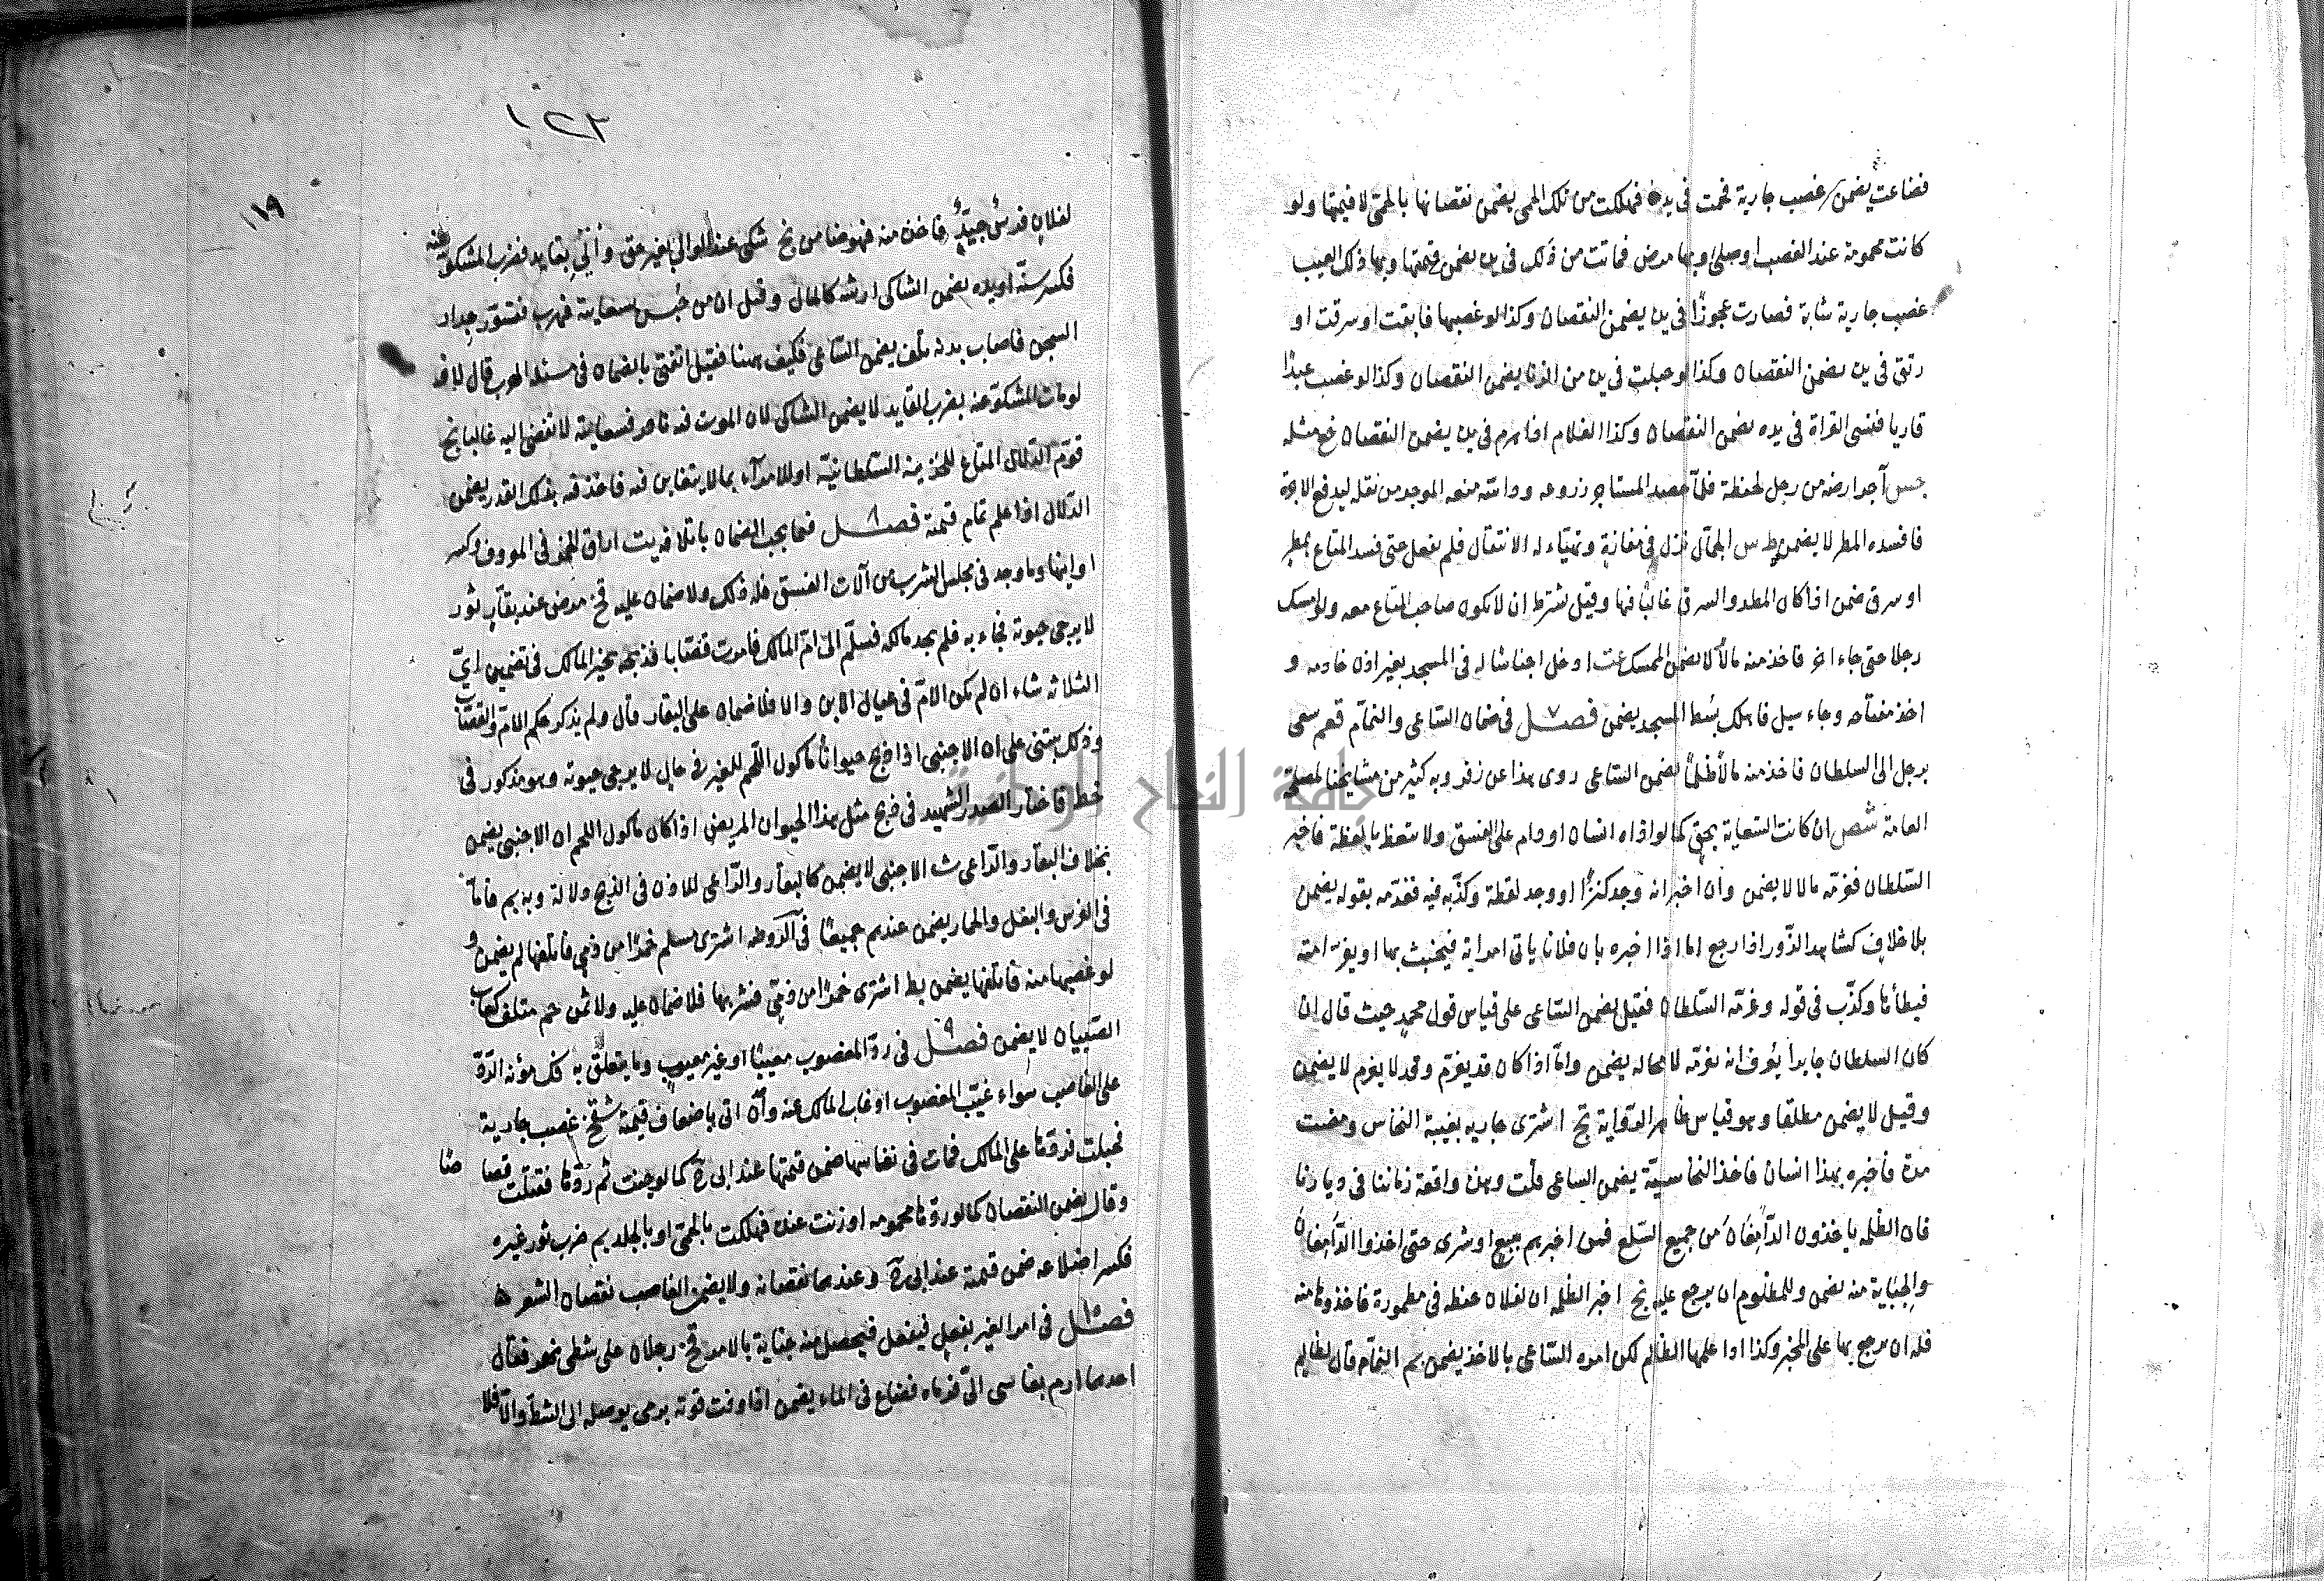 فضاعت يضمن غصب جارية فحمت في يده فهلكت من تلك الحمى يضمن نقصانها بالحمى لا قيمتها ولو
كانت محمومة عند الغصب او حبلى او بها مرض فماتت من ذلك في يده يضمن قيمتها وبها ذلك العيب
غصب جارية شابة فصارت عجوزا في يده يضمن النقصان وكذا لو غصبها فابقت او سرقت او
زنت في يده يضمن النقصان وكذا لو حبلت في يده من الزنا يضمن النقصان وكذا لو غصب عبدا
قاريا فنسى القراة في يده يضمن النقصان وكذا الغلام اذا هرم في يده يضمن النقصان مثله
آجر ارضه من رجل لحنطة فلما حصد المستاجر زرعه وداسه منعه الموجر من نقله ليدفع الاجرة
فافسده المطر لا يضمن الجمال نزل في مفازة وتهيّاء له الانتقال فلم يفعل حتى فسد المتاع بمطر
او سرق ضمن اذا كان المطر والسرق غالبا فيها وقيل شرط ان لا يكون صاحب المتاع معه ولو امسك
رجلا حتى جاء اخر فاخذ منه مالا لا يضمن الممسك ادخل اجناسا له في المسجد بغير اذن خادمه و
اخذ مفتاحه وجاء سيل فاهلك بسط المسجد يضمن فصل ٧ في ضمان الساعي والنمام سعى
برجل الى السلطان فاخذ منه مالا ظلما يضمن الساعي روى هذا عن زفر وبه كثير من مشايخنا لمصلحة
العامة ان كانت السعاية بحق كما لو اذاه انسان او دام على الفسق ولا يتعظ بالعظة فاخبر
السلطان فغرمه مالا لا يضمن وان اخبر انه وجد كنزا او وجد لقطة وكذبه فيه فغرمه بقوله يضمن
بلا خلاف كشاهد الزور اذا رجع اما اذا اخبره بان فلانا ياتي امراته فيخبث بها او امته
فيطأها وكذب في قوله وغرمه السلطان فقيل يضمن الساعي على قياس قول محمد حيث قال ان
كان السلطان جايرا يعرف انه يغرمه لا محاله يضمن واما اذا كان قد يغرم وقد لا يغرم لا يضمن
وقيل لا يضمن مطلقا وهو قياس ظاهر الرواية اشترى جارية بغيبة النخاس ومضت
مدة فاخبره بهذا انسان فاخذ النخاسية يضمن الساعي قلت وهذه واقعة زماننا في ديارنا
فان الظلمه ياخذون من جميع السلع فمن اخبرهم ببيع او شرى حتى اخذوا
والجباية منه يضمن وللمظلوم ان يرجع عليه اخبر الظلمه ان لفلان حنطه في مطمورة فاخذوها منه
فله ان يرجع بها على المخبر وكذا اذا علمها الظالم لكن امره الساعي بالاخذ يضمن النمام قال لظالم
١٢٣
١١٩
لفلان فرس جيد فاخذه منه فهو ضامن شكى عند الوالي بغير حق واتى بقايد فضرب المشكو عنه
فكسر سنه او يده يضمن الشاكي ارشه كالمال وقيل ان من حبس بسعاية فهرب فتسور جدار
السجن فاصاب بدنه تلف يضمن الساعي فكيف هنا فقيل اتفتي بالضمان في مسئلة الهرب قال لا
لو مات المشكو عنه بضرب القايد لا يضمن الشاكي لان الموت فيه نادر فسعايته لا تفضي اليه غالبا
قوم الدلال المتاع للخزينه السلطانية او للامراء بما لا يتغابن فيه فاخذ فيه بذلك القدر يضمن
الدلال اذا علم تمام قيمته فصل ٨ فيما يجب الضمان باتلافه اراق الخمر وكسر
اوانيها وما وجد في مجلس الشرب من آلات الفسق فله ذلك ولا ضمان عليه مرض عند بقار ثور
لا يرجى حيوته فجاء به فلم يجد مالكه فسلم الى ام المالك فامرت قصابا فذبحه يخير المالك في تضمين اي
الثلاثة شاء ان لم تكن الام في عيال الابن والا فلا ضمان على البقار قال ولم يذكر حكم الام والقصاب
وذلك يبتنى على ان الاجنبي اذا ذبح حيوانا ماكول اللحم للغير في حال لا يرجى حيوته وهو مذكور في
فاختار الصدر الشهيد في ذبح مثل هذا الحيوان المريض اذا كان ماكول اللحم ان الاجنبي يضمن
بخلاف البقار والراعي الاجنبي لا يضمن كالبقار والراعي للاذن في الذبح دلالة وبه فاما
في الفرس والبغل والحمار يضمن عندهم جميعا في الروضه اشترى مسلم خمرا من ذمي فاتلفها لم يضمن و
لو غصبها منه فاتلفها يضمن اشترى خمرا من ذمي فشربها فلا ضمان عليه ولا ثمن متلف كعاب
الصبيان لا يضمن فصل ٩ في رد المغصوب معيبا او غير معيوب وما يتعلق به مؤنه الرد
على الغاصب سواء غيب المغصوب او غاب المالك عنه وان اتى باضعاف قيمته غصب جارية
فحبلت فردها على المالك فماتت في نفاسها ضمن قيمتها عند ابي ح كما لو جنت ثم ردها فقتلت قصاصا
وقال يضمن النقصان كما لو ردها محمومه او زنت عنده فهلكت بالحمى او بالجلد ضرب ثور غيره
فكسر اضلاعه ضمن قيمته عند ابي ح وعندهما نقصانه ولا يضمن الغاصب نقصان السعر
فصل ١٠ في امر الغير بفعل فيفعل فيحصل منه جناية بالامر رجلان على شطى نهر فقال
احدهما ارم بفاسي الي فرماه فضاع في الماء يضمن اذا وفت قوته برمي يوصله الى الشط والا فلا
جامعة النجاح الوطنية